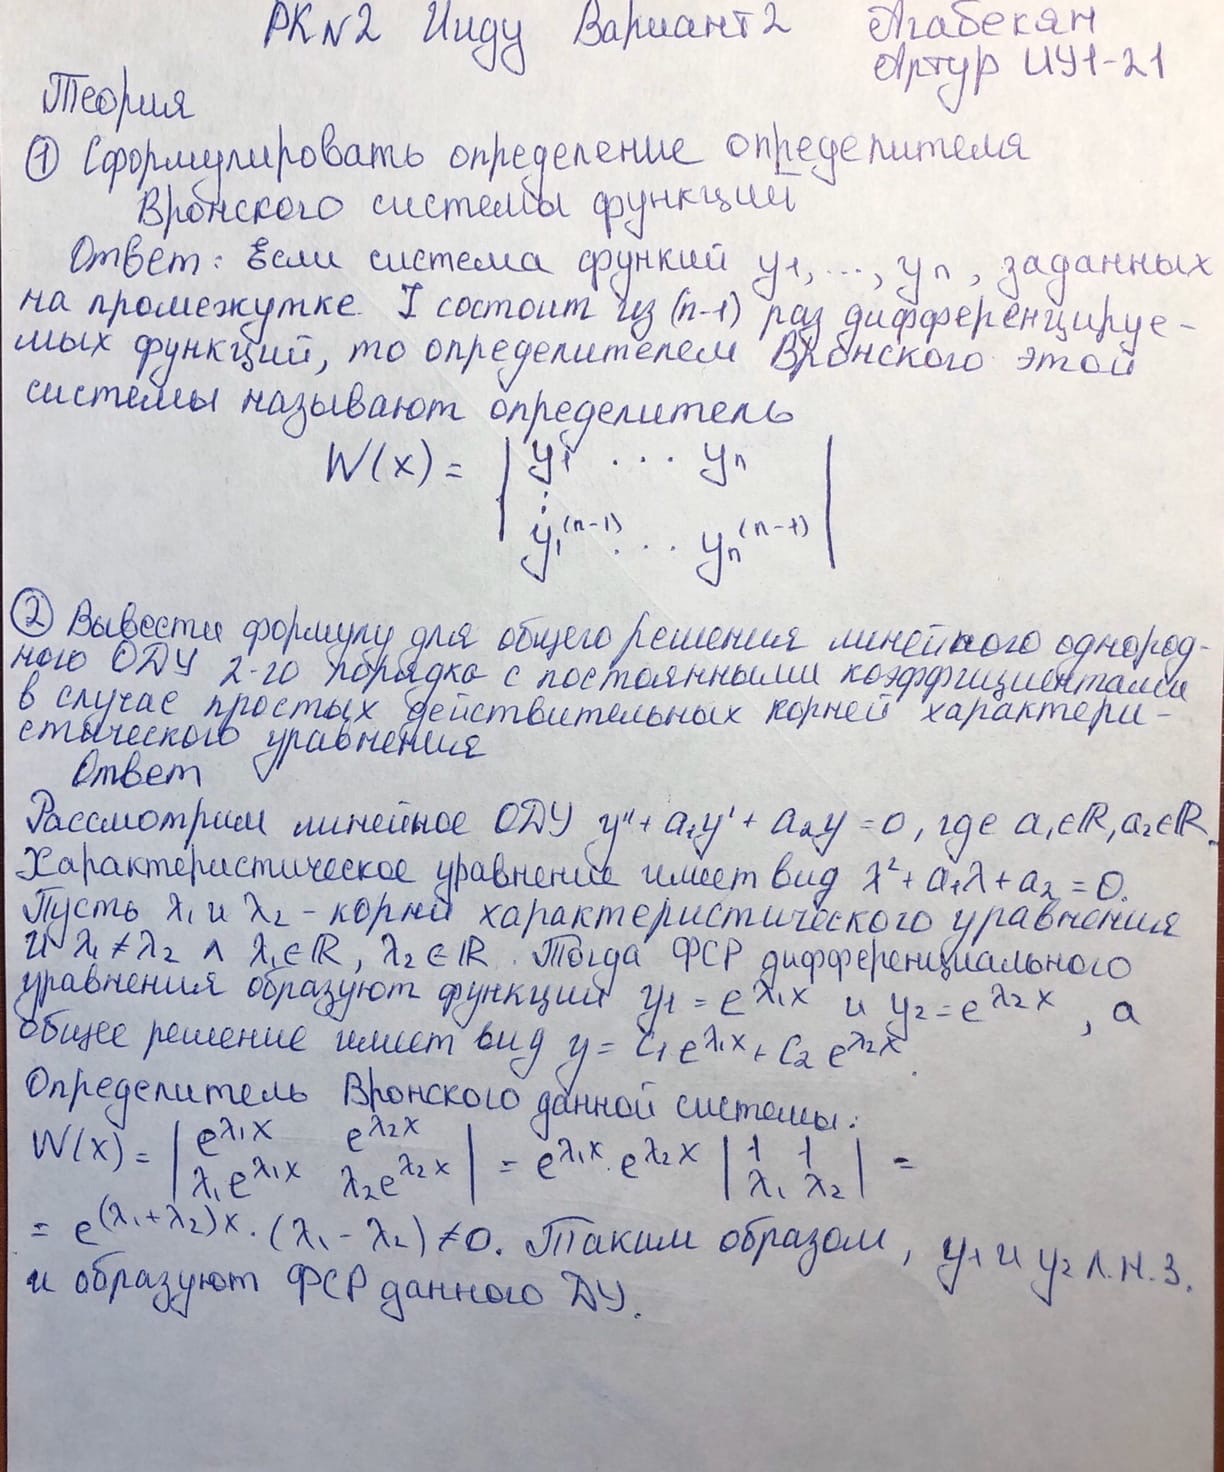 РК№2 ИиДУ Вариант 2 Агабекян
Артур ИУ1-21
Теория
① Сформулировать определение определителя
Вронского системы функций
Ответ: Если система функий y₁, ..., yₙ, заданных
на промежутке I состоит из (n-1) раз дифференцируе-
мых функций, то определителем Вронского этой
системы называют определитель
W(x) = | y₁ ... yₙ |
⋮
| y₁⁽ⁿ⁻¹⁾ ... yₙ⁽ⁿ⁻¹⁾ |
② Вывести формулу для общего решения линейного однород-
ного ОДУ 2-го порядка с постоянными коэффициентами
в случае простых действительных корней характери-
стического уравнения
Ответ
Рассмотрим линейное ОДУ y'' + a₁y' + a₂y = 0, где a₁∈ℝ, a₂∈ℝ.
Характеристическое уравнение имеет вид λ² + a₁λ + a₂ = 0.
Пусть λ₁ и λ₂ - корни характеристического уравнения
и λ₁ ≠ λ₂ ∧ λ₁∈ℝ, λ₂∈ℝ. Тогда ФСР дифференциального
уравнения образуют функции y₁ = e^(λ₁x) и y₂ = e^(λ₂x), а
общее решение имеет вид y = C₁e^(λ₁x) + C₂e^(λ₂x).
Определитель Вронского данной системы:
W(x) = | e^(λ₁x) e^(λ₂x) | = e^(λ₁x) · e^(λ₂x) | 1 1 | =
| λ₁e^(λ₁x) λ₂e^(λ₂x) | | λ₁ λ₂ |
= e^((λ₁+λ₂)x) · (λ₁ - λ₂) ≠ 0. Таким образом, y₁ и y₂ л.н.з.
и образуют ФСР данного ДУ.